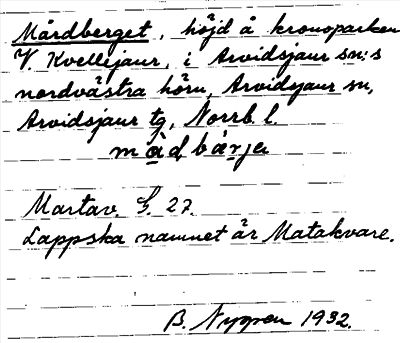 Mårdberget, höjd å kronoparken
V. Kvellijaur, i Arvidsjaur sn:s
nordvästra hörn, Arvidsjaur sn,
Arvidsjaur tg, Norrb. l.
må̀d bæ̀rje
Martav. G. 27.
Lappska namnet är Matakvare.
B. Nygren 1932.